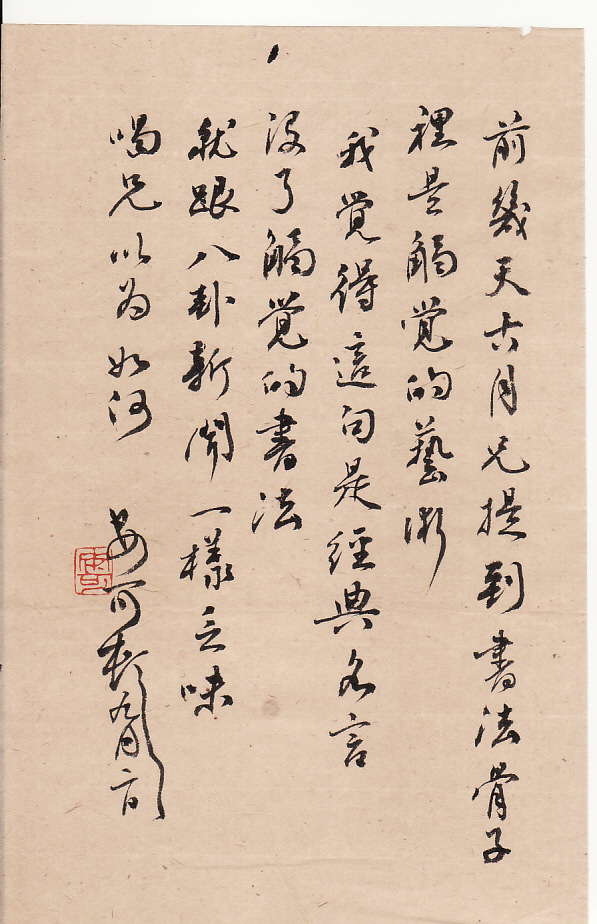 前幾天古月兄提到書法骨子
裡是觸覺的藝術
我覺得這句是經典名言
沒了觸覺的書法
就跟八卦新聞一樣乏味
喝兄以為如何
九月